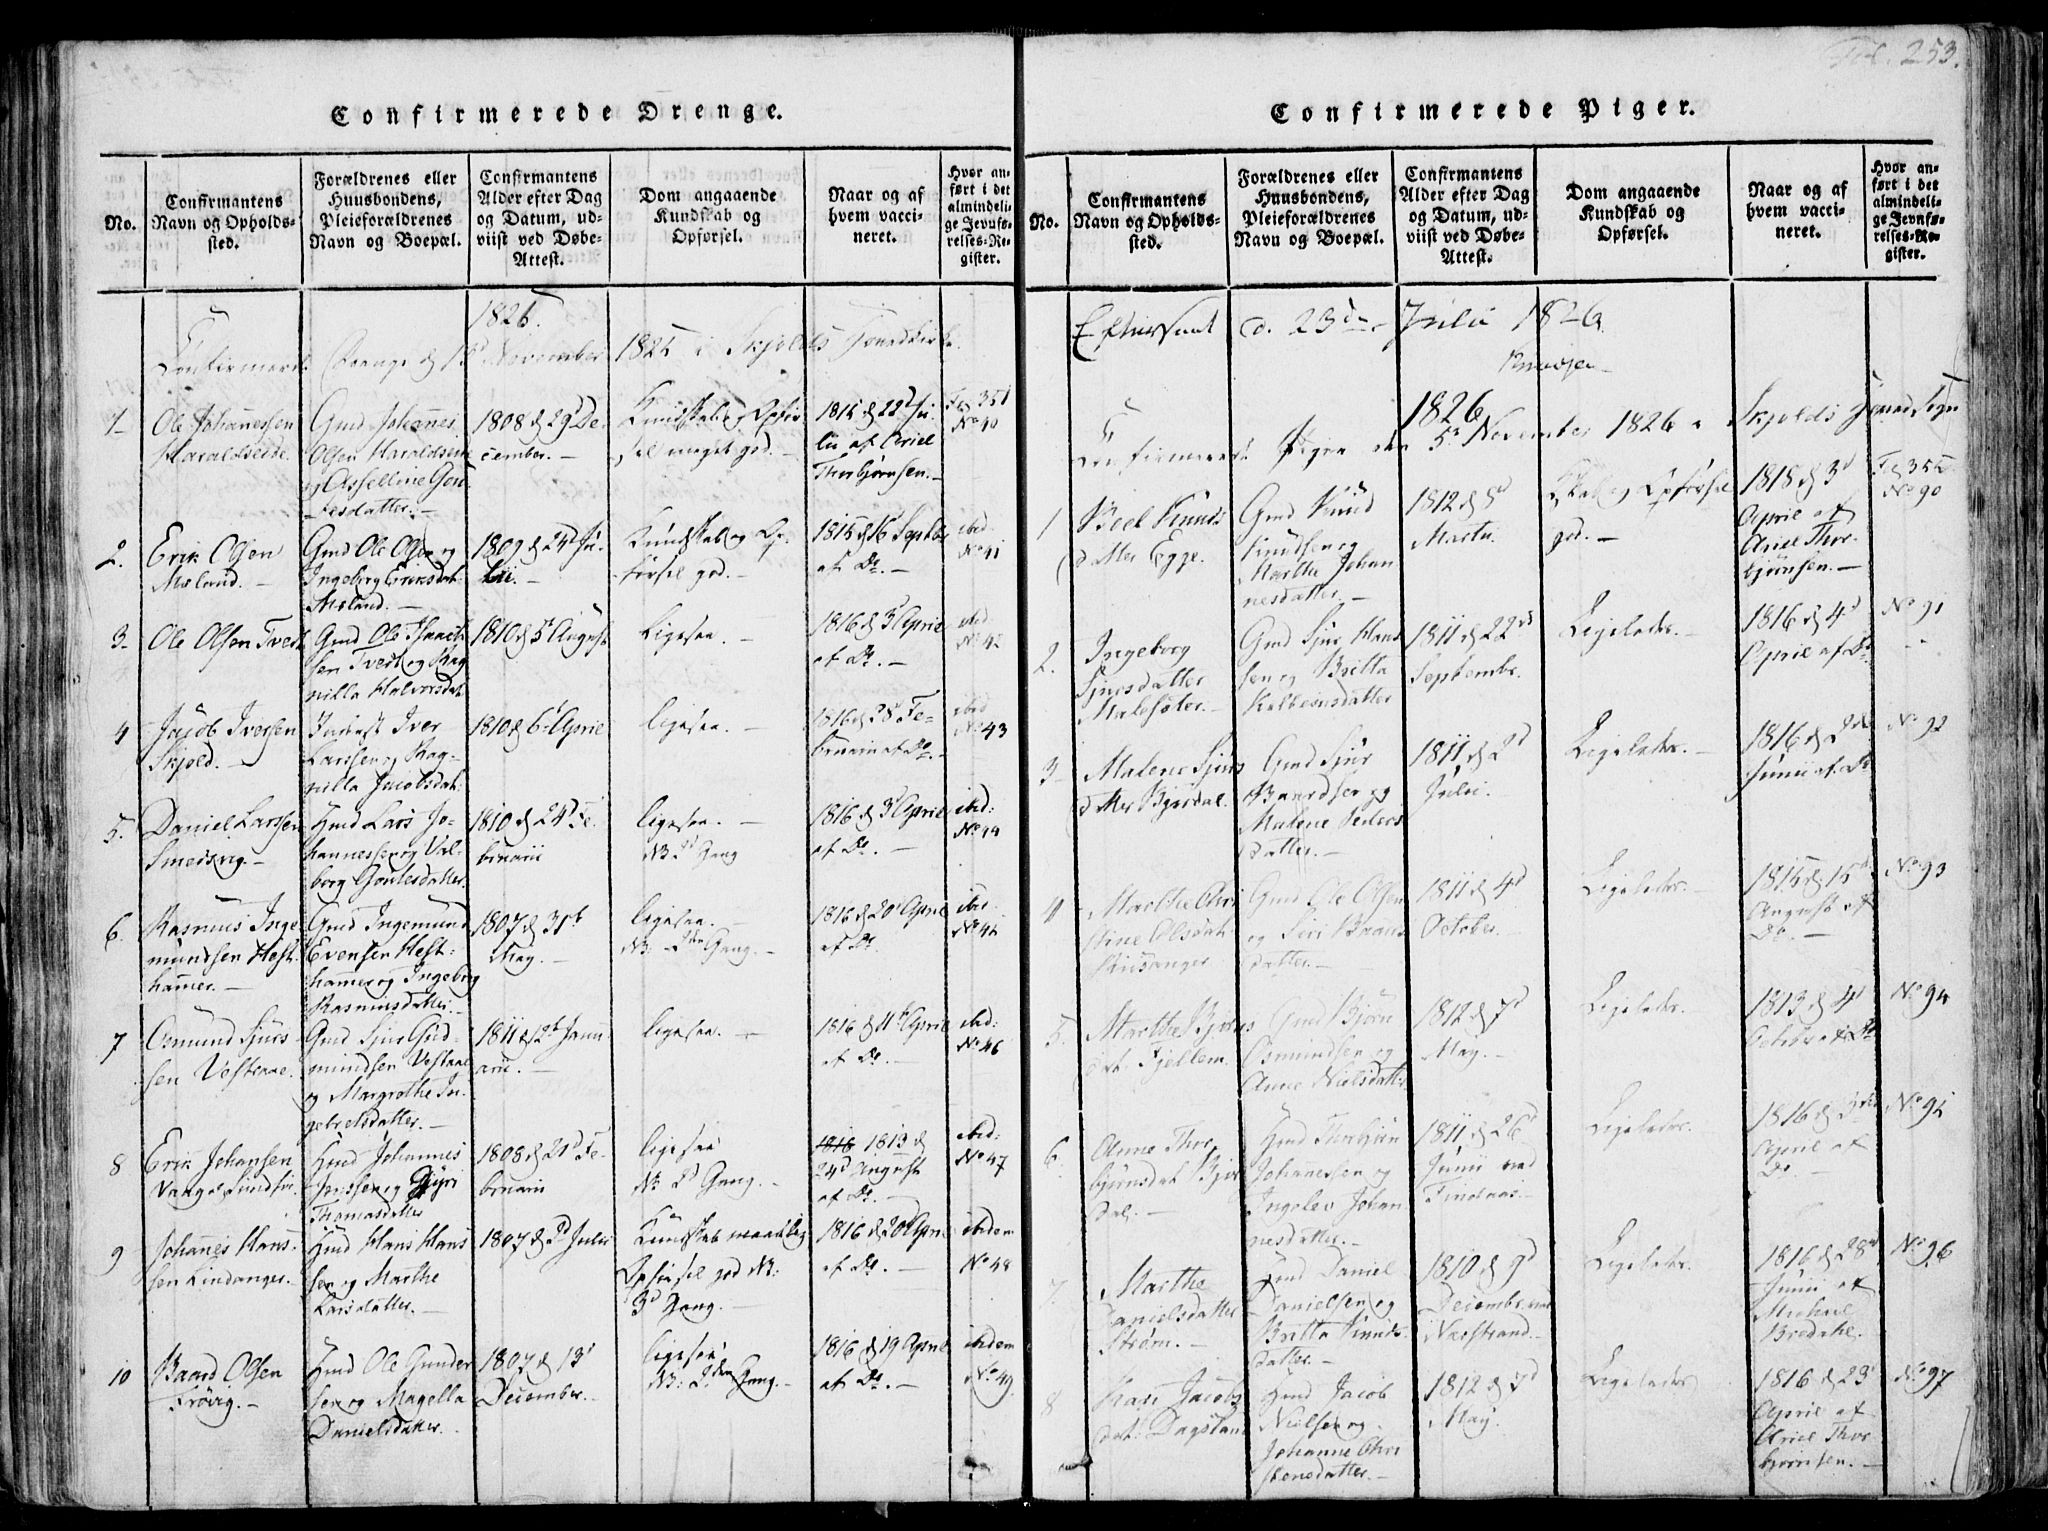 Fol. 253.
Confirmerede Drenge.
No.
Confirmantens
Navn og Opholds-
sted.
Forældrenes eller
Huusbondens,
Pleieforældrenes
Navn og Boepæl.
Confirmantens
Alder efter Dag
og Datum, ud-
viist ved Døbe-
Attest.
Dom angaaende
Kundskab og
Opførsel.
Naar og af
hvem vacci-
neret.
Hvor an-
ført i det
almindeli-
ge Jevnfø-
relses-Re-
gister.
1825.
Confirmerede Drenge d November 1825 i Skjolds
1
Ole Johannessen
Haraldseide
Gmd Johannes
Olsen Haraldseide
og Asseline Gou-
tesdatter.
1808 d 29d De-
cember.
Kundskab og Opfør-
sel meget god.
1815 d 22d Ju-
lii af Ariel
Thorbjørnsen.
Fol 351
No 40
2.
Erik Olsen
Mæland.
Gmd Ole Olsen og
Ingeborg Eriksdat
Mæland.
1809 d 24d Ju-
lii.
Kundskab og Op-
førsel god.
1815 d 16 Septbr
af Do.
ibid
No 41
3
Ole Olsen Tvest
Gmd Ole Isaach-
sen Tvest og Rag-
nilla Halvorsdat
1810 d 5t August
ligesaa.
1816 d 3d April
af Do.
ibid
No 42
4
Jacob Iversen
Skjold.
Iver
Larssen og Rag-
nilla Jacobsdat:
1810 d 6t April
ligesaa.
1816 d 28 Fe-
bruarii af Do.
ibid
No 43
5.
Daniel Larssen
Smedsvig.
Hmd Lars Jo-
hannessen og Val-
borg Goutesdatter.
1810 d 24d Fe-
bruarii
ligesaa.
NB 2d Gang
1816 d 3d April
af Do.
ibid:
No 44
6.
Rasmus Inge-
mundsen Hest-
hamer.
Gmd Ingemund
Evensen Hest-
hamer og Ingeborg
Rasmusdatter.
1807 d 31t
May.
ligesaa.
NB: Gang.
1816 d 20d April
af Do.
ibid
No 45
7
Osmund Sjurs-
sen Vestraae.
Gmd Sjur Gud-
mundsen Vestraae
og Margrethe In-
gebretsdatter.
1811 d 12t Janu-
arii.
ligesaa.
1816 d 11t April
af Do.
ibid:
No 46
8
Erik Johansen
Vaage
Hmd Johannes
og Gyri
Thomasdatter
1808 d 21d Fe-
bruarii
ligesaa
NB 2d Gang.
1816 1813 d
24d August
af Do.
ibid:
No 47
9
Johanes Hans-
sen Lindanger.
Hmd Hans Hans-
sen og Marthe
Larsdatter.
1807 d 2d Julii
Kundskab maadelig
Opførsel god NB:
3d Gang.
1816 d 20d April
af Do.
ibidem
No 48
10
Baard Olsen
Frøvig.
Hmd Ole Gunder-
sen og Magella
Danielsdatter.
1807 d 13d
December.
ligesaa
NB: 2den Gang.
1816 d 19 April
af Do.
ibidem
No 49.
Confirmerede Piger.
No.
Confirmantens
Navn og Opholds-
sted.
Forældrenes eller
Huusbondens,
Pleieforældrenes
Navn og Boepæl.
Confirmantens
Alder efter Dag
og Datum, ud-
viist ved Døbe-
Attest.
Dom angaaende
Kundskab og
Opførsel.
Naar og af
hvem vacci-
neret.
Hvor an-
ført i det
almindeli-
ge Jevnfø-
relses-Re-
gister.
Efterseet d. 23de Julii 1826
1826
Confirmerede Piger den 5t November 1826 i Skjolds
1
Boel Knuds-
datter Egge.
Gmd Knud
Knudsen og
Marthe Johan-
nesdatter.
1812 d 8d
Martii.
Kskab og Opførsel
god.
1818 d 3d
April af
Ariel Thor-
bjørnsen.
Fol 355
No 90
2.
Ingeborg
Sjursdatter
Malesæter.
Gmd Sjur Hans-
sen og Britta
Kolbensdatter
1811 d 22d
Septembr.
Ligeledes.
1816 d 4d
April af Do
No 91
3
Malene Sjurs-
datter Bjørdal.
Gmd Sjur
Baardsen og
Malene Peders-
datter.
1811, d 2d
Julii.
Ligeledes.
1816 d 2de
Junii af Do
No 92
4
Marthe Chri-
stine Olsdat
Gmd Ole Olsen
og Siri Baards-
datter.
1811 d 4d
October.
Ligeledes.
1815 d 15d
August af
Do.
No 93
5.
Marthe Bjørns-
dat: Fjellem.
Gmd Bjørn
Osmundsen og
Anne Nielsdatter
1812 d 7d
May.
Ligeledes.
1813 d 4d
Octobr af Do
No 94
6.
Anne Thor-
bjørnsdat Bjør-
dal.
Hmd Thorbjørn
Johannessen og
Ingelev Johan-
nesdatter.
1811 d 26d
Junii ved
Findaas.
Ligeledes.
1816 d 3die
April af
Do
No 95
7.
Marthe
Danielsdatter
Strøm.
Hmd Daniel
Danielsen og
Britta Knuds-
datter.
1810 d 9d
Decembr. ved
Nærstrand.
Ligeledes.
1816 d 28d
Junii af
Michael
Bredahl.
No 96
8
Kari Jacobs-
dat: Dagsland
Hmd Jacob
Nielsen og
Johanne Chri-
stensdatter.
1812 d 3d
May.
Ligeledes
1816 d 23d
April af
Ariel Thor-
bjørnsen.
No 97